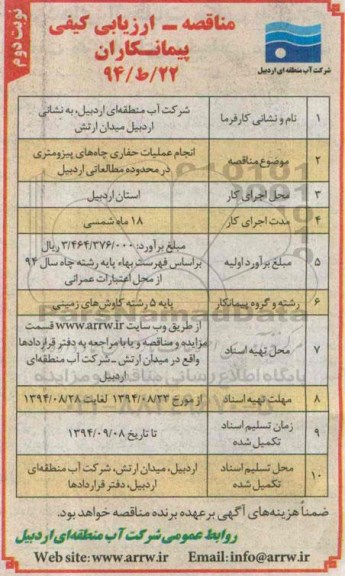 نوبت دوم
مناقصه - ارزیابی کیفی
پیمانکاران
۹۴/ط/۲۲
شرکت آب منطقه ای اردبیل
۱ نام و نشانی کارفرما شرکت آب منطقه‌ای اردبیل، به نشانی
اردبیل میدان ارتش
۲ موضوع مناقصه انجام عملیات حفاری چاه‌های پیزومتری
در محدوده مطالعاتی اردبیل
۳ محل اجرای کار استان اردبیل
۴ مدت اجرای کار ۱۸ ماه شمسی
۵ مبلغ برآورد اولیه مبلغ برآورد: ۳/۴۶۴/۳۷۶/۰۰۰ ریال
براساس فهرست بهاء پایه رشته چاه سال ۹۴
از محل اعتبارات عمرانی
۶ رشته و گروه پیمانکار پایه ۵ رشته کاوش‌های زمینی
۷ محل تهیه اسناد از طریق وب سایت www.arrw.ir قسمت
مزایده و مناقصه و یا با مراجعه به دفتر قراردادها
واقع در میدان ارتش - شرکت آب منطقه‌ای
اردبیل
۸ مهلت تهیه اسناد از مورخ ۱۳۹۴/۰۸/۲۳ لغایت ۱۳۹۴/۰۸/۲۸
۹ زمان تسلیم اسناد
تکمیل شده تا تاریخ ۱۳۹۴/۰۹/۰۸
۱۰ محل تسلیم اسناد
تکمیل شده اردبیل، میدان ارتش، شرکت آب منطقه‌ای
اردبیل، دفتر قراردادها
ضمناً هزینه‌های آگهی برعهده برنده مناقصه خواهد بود.
روابط عمومی شرکت آب منطقه‌ای اردبیل
Web site: www.arrw.ir Email: info@arrw.ir
ParsNamadData